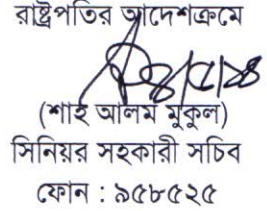 রাষ্ট্রপতির আদেশক্রমে
(শাহ আলম মুকুল)
সিনিয়র সহকারী সচিব
ফোন : ৯৫৮৫২৫